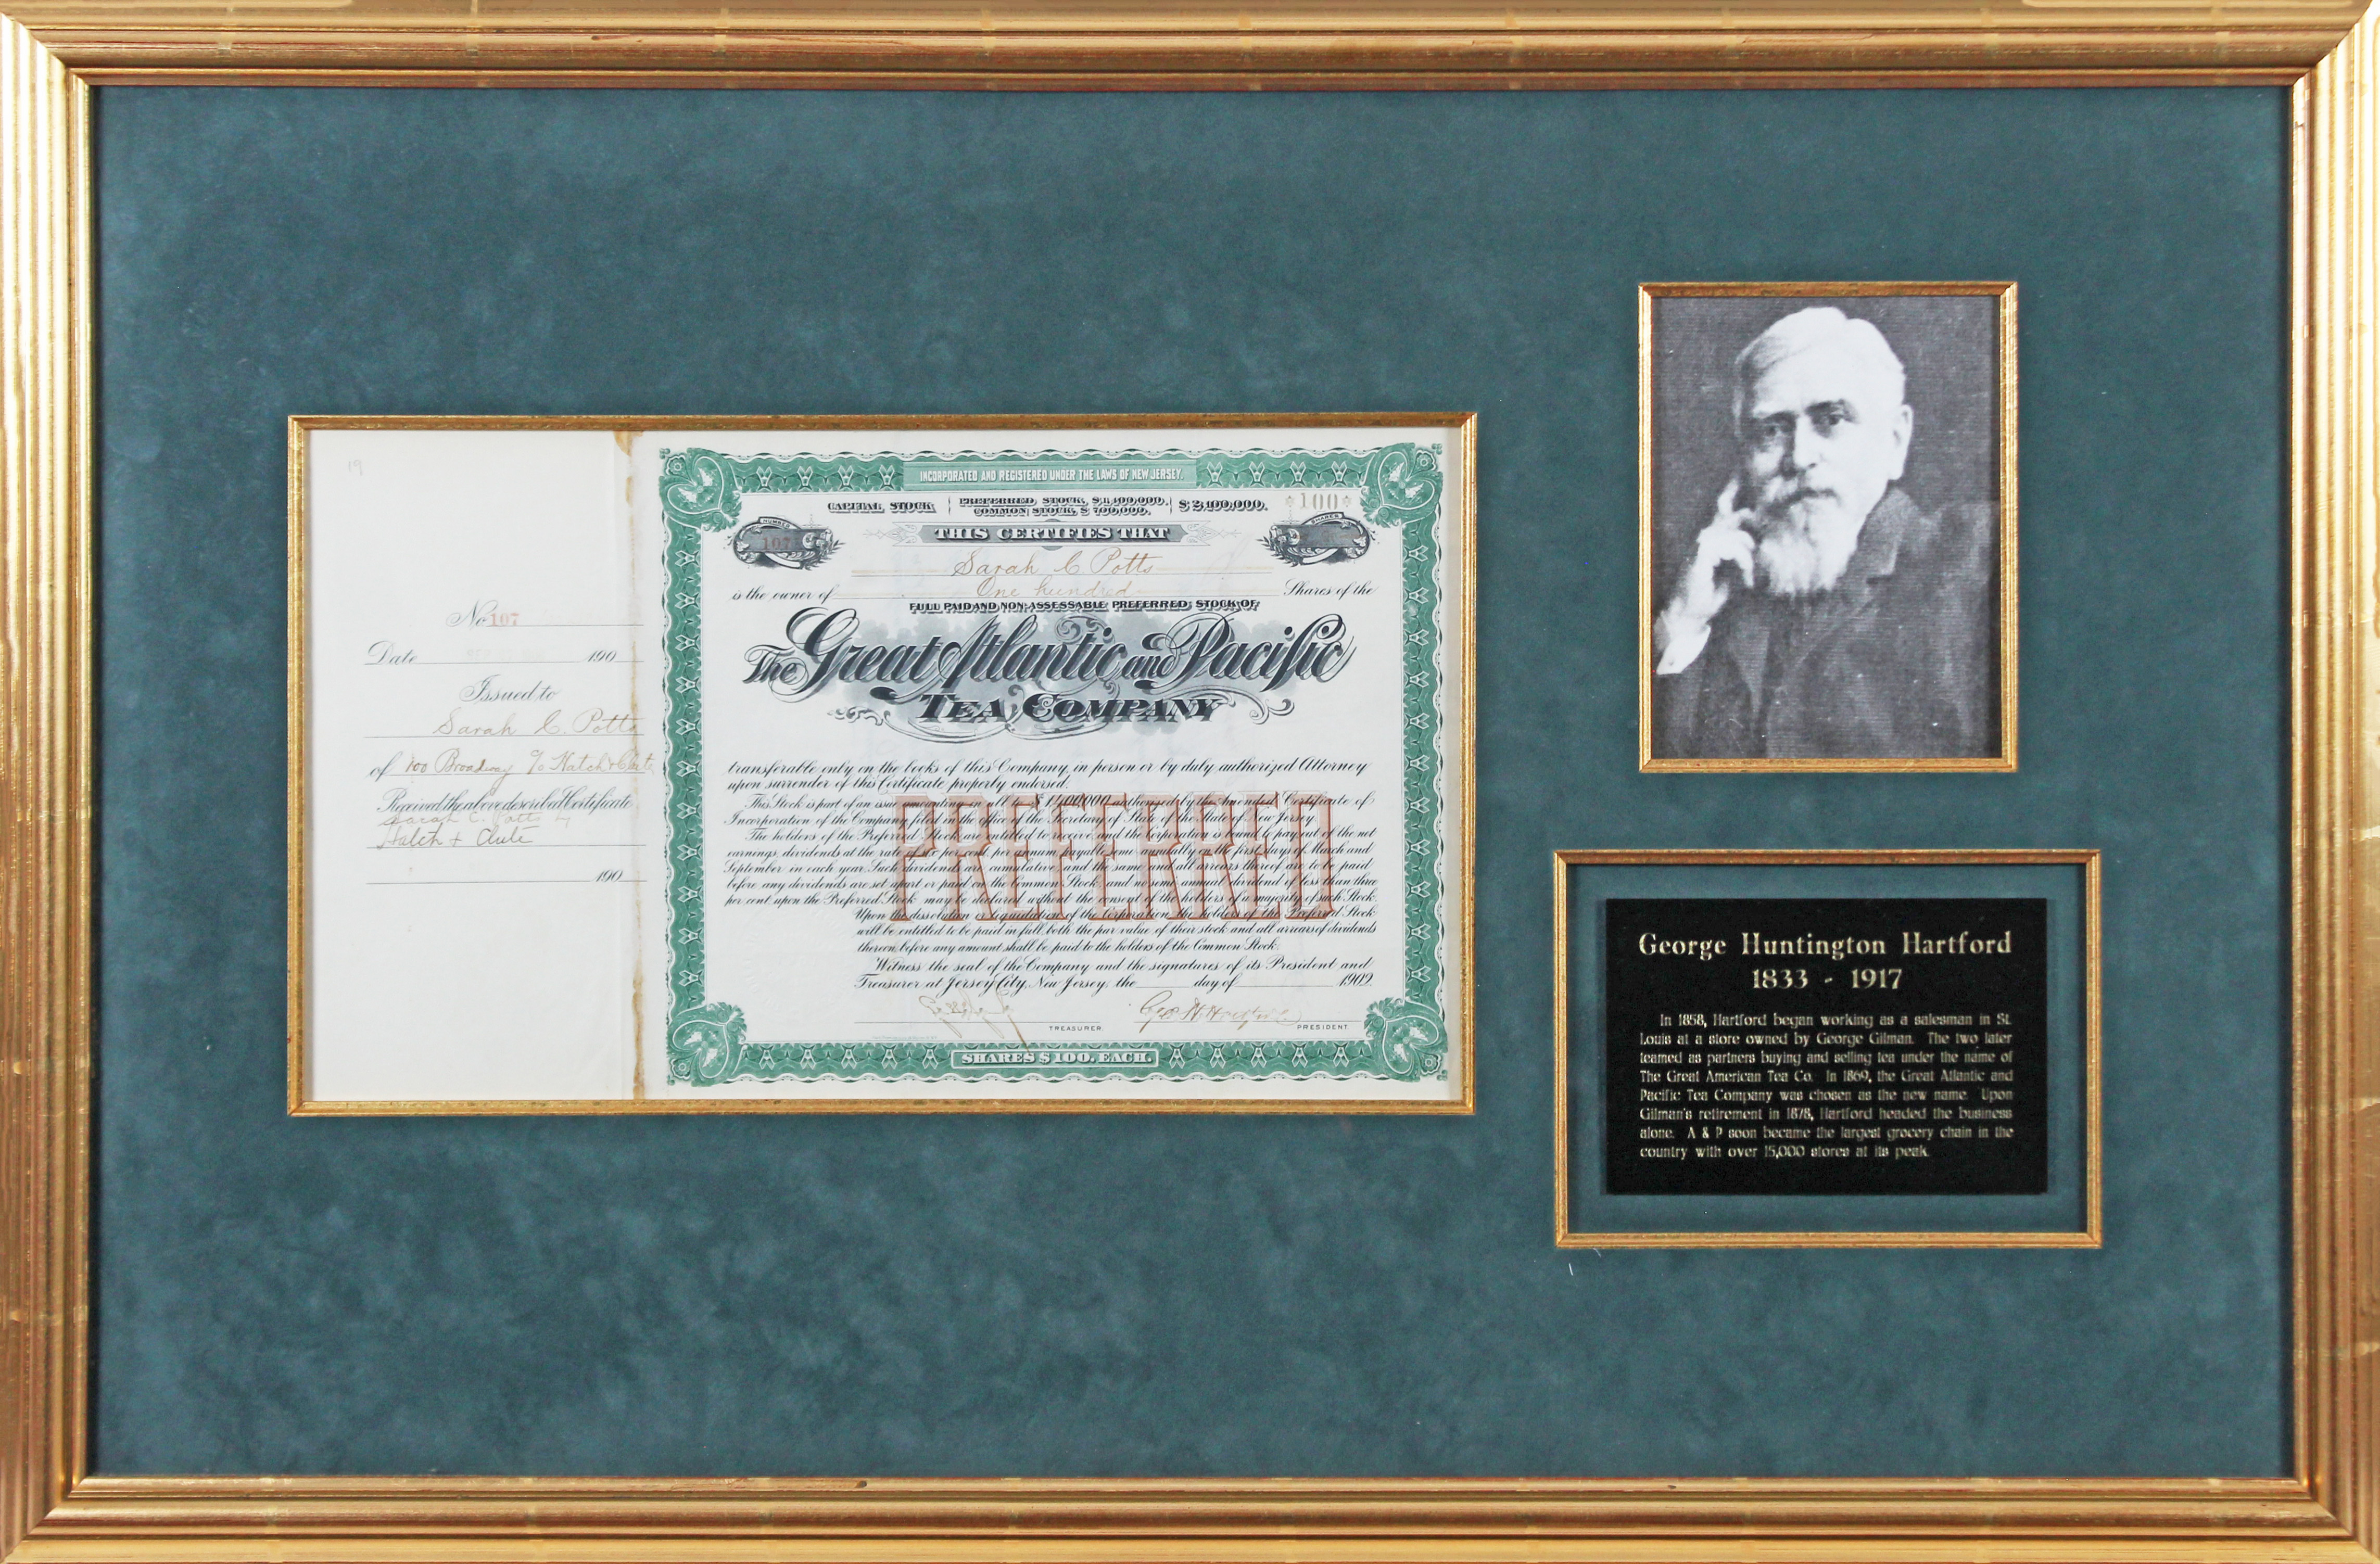 19
No 107
Date 190
Issued to
Sarah C. Potts
of 100 Broadway c/o Hatch & Clute
Received the above described Certificate
Sarah C. Potts by
Hatch + Clute
190
INCORPORATED AND REGISTERED UNDER THE LAWS OF NEW JERSEY.
CAPITAL STOCK PREFERRED STOCK, $1,400,000. COMMON STOCK, $700,000. $2,100,000.
100
NUMBER
107
SHARES
THIS CERTIFIES THAT
Sarah C Potts
is the owner of One hundred Shares of the
FULL PAID AND NON-ASSESSABLE PREFERRED STOCK OF
The Great Atlantic and Pacific
TEA COMPANY
transferable only on the books of this Company, in person or by duly authorized Attorney
upon surrender of this Certificate properly endorsed.
This Stock is part of an issue amounting in all to $1,400,000 authorized by the Amended Certificate of
Incorporation of the Company filed in the office of the Secretary of State of the State of New Jersey.
The holders of the Preferred Stock are entitled to receive and the Corporation is bound to pay out of the net
earnings, dividends at the rate of six per cent. per annum, payable semi-annually on the first days of March and
September in each year. Such dividends are cumulative, and the same and all arrears thereof are to be paid
before any dividends are set apart or paid on the Common Stock, and no semi-annual dividend of less than three
per cent upon the Preferred Stock may be declared without the consent of the holders of a majority of such Stock.
Upon the dissolution or liquidation of the Corporation the holders of the Preferred Stock
will be entitled to be paid in full both the par value of their stock and all arrears of dividends
thereon, before any amount shall be paid to the holders of the Common Stock.
PREFERRED
Witness the seal of the Company and the signatures of its President and
Treasurer at Jersey City, New Jersey, the day of 1902
Geo H Hartford
TREASURER. PRESIDENT.
SHARES $100. EACH.
George Huntington Hartford
1833 - 1917
In 1858, Hartford began working as a salesman in St.
Louis at a store owned by George Gilman. The two later
teamed as partners buying and selling tea under the name of
The Great American Tea Co. In 1869, the Great Atlantic and
Pacific Tea Company was chosen as the new name. Upon
Gilman's retirement in 1878, Hartford headed the business
alone. A & P soon became the largest grocery chain in the
country with over 15,000 stores at its peak.